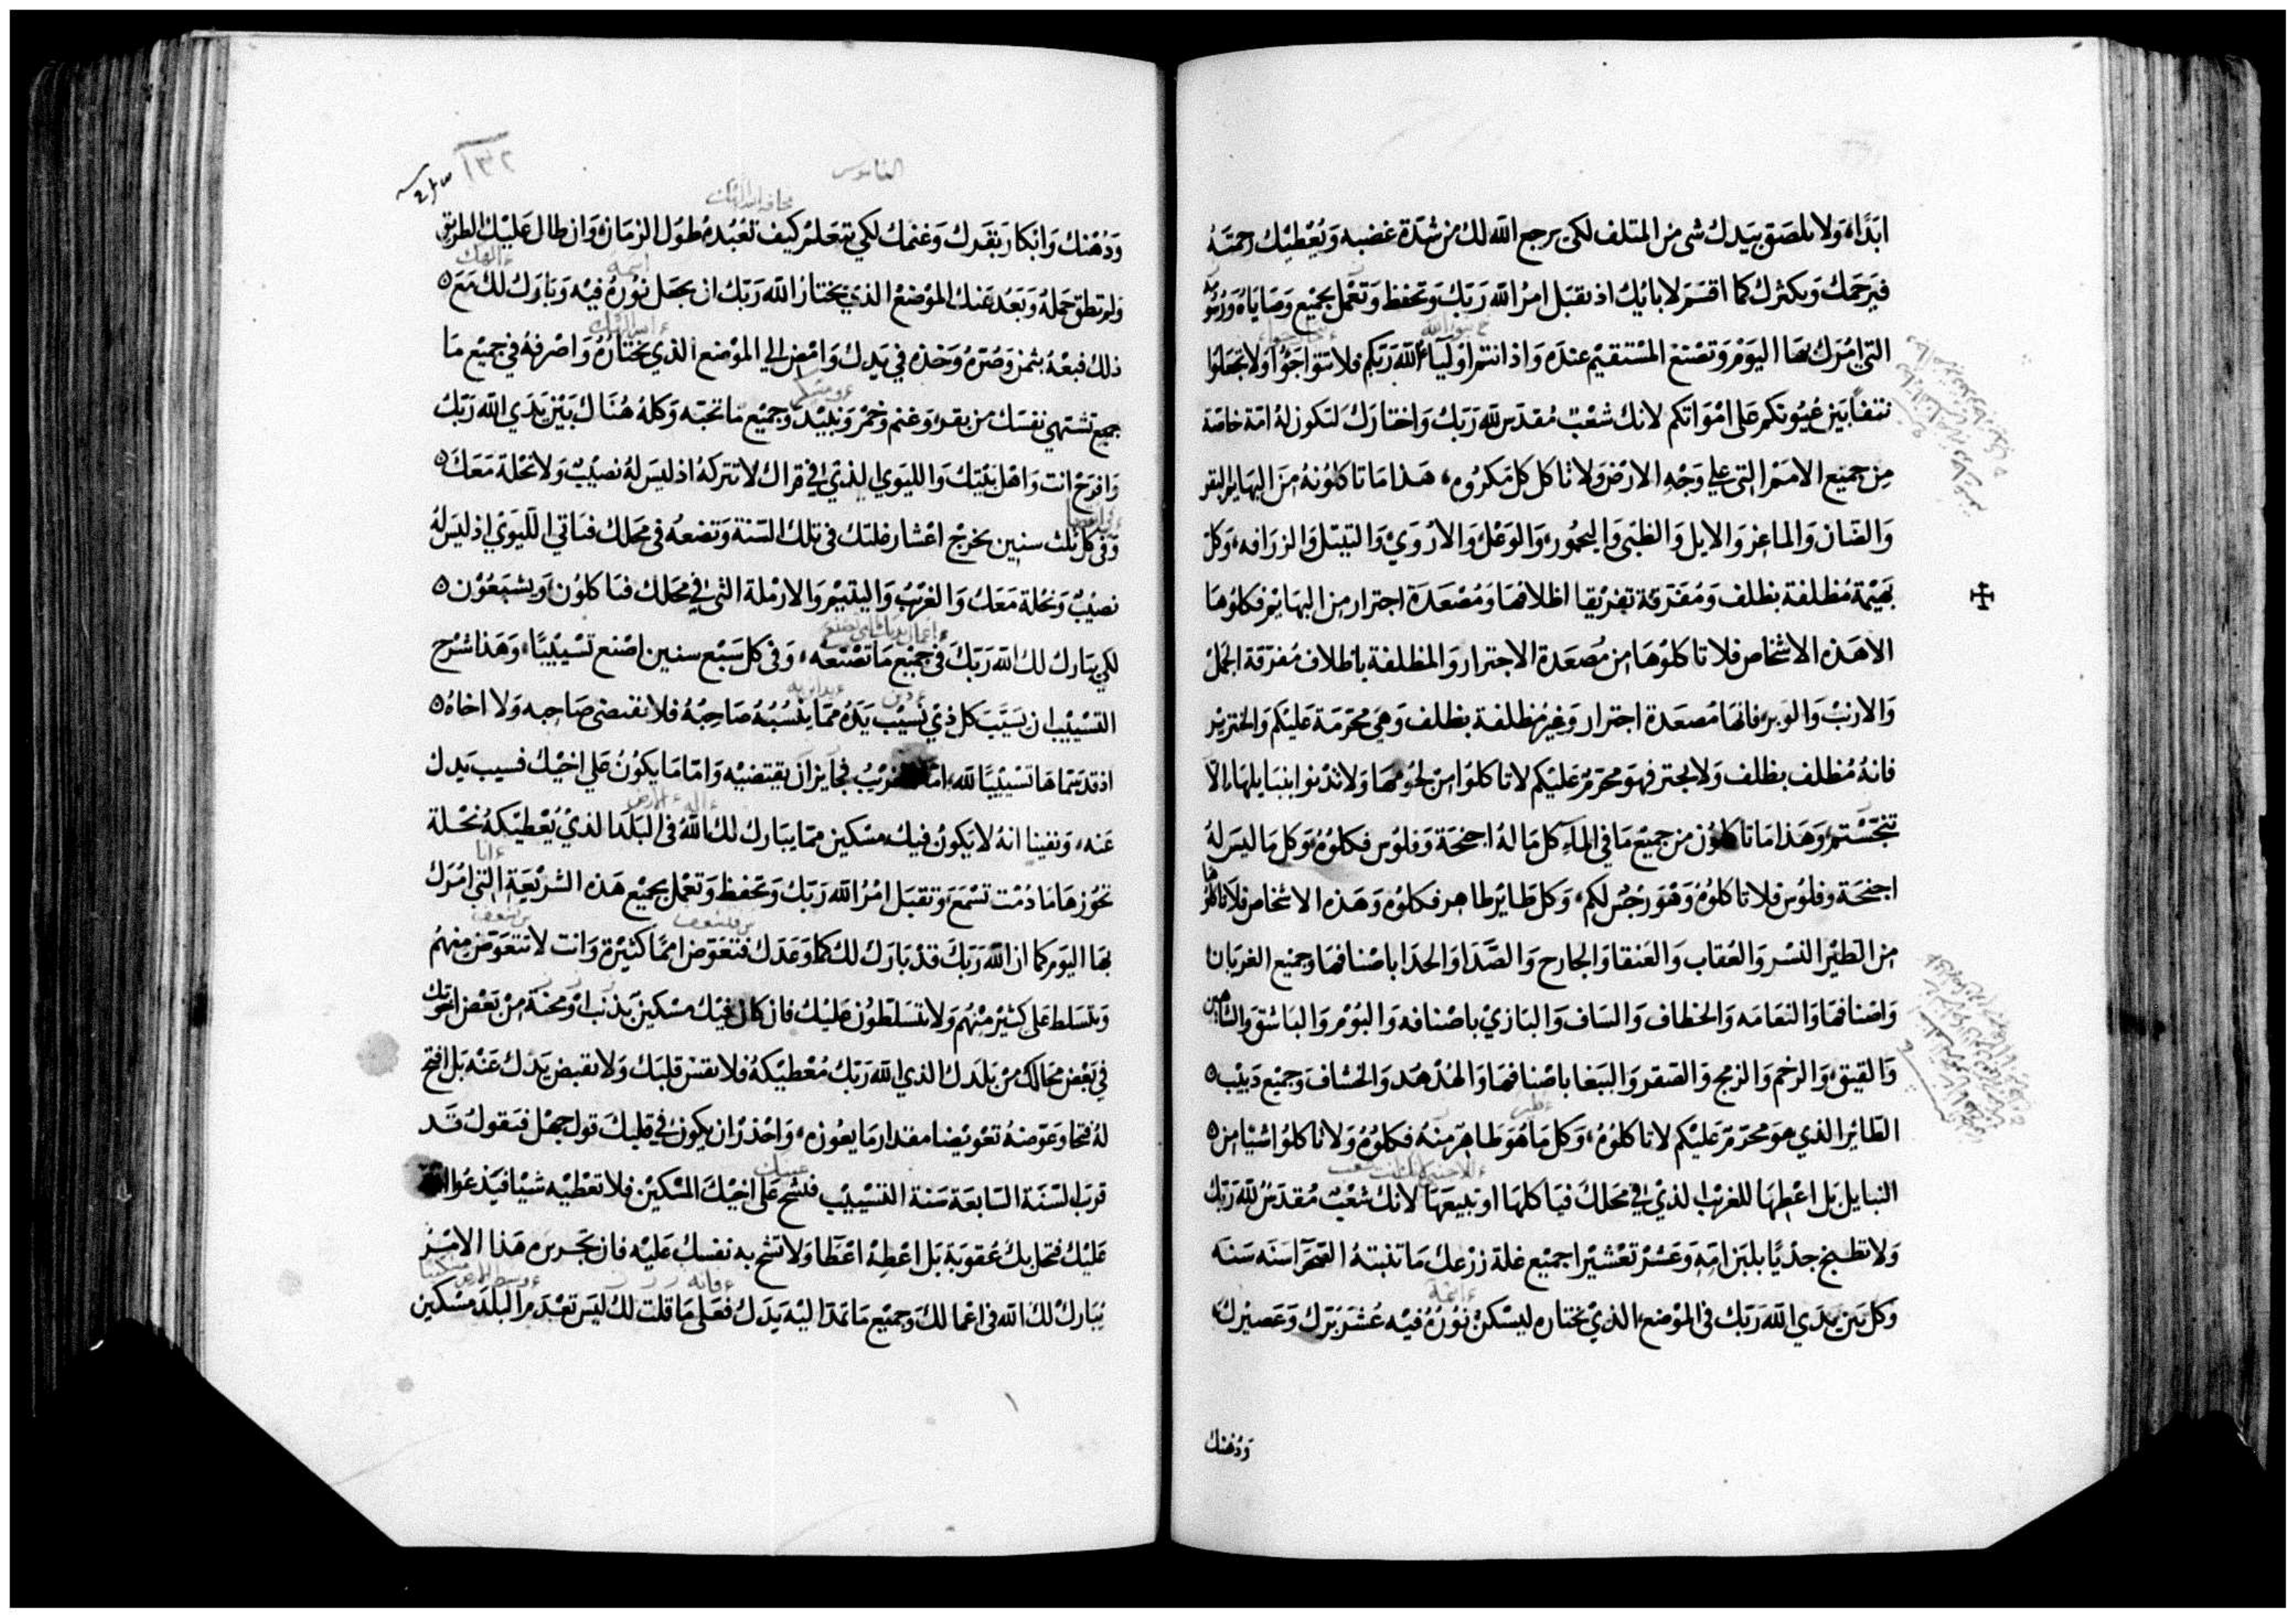 ابدًا ولا يلصق بيدك شى من المتلف لكى يرجع الله لك من شدة غضبه ويعطيك رحمته
فيرحمك ويكثرك كما اقسم لابايك اذ تقبل امر الله ربك وتحفظ وتعمل بجميع وصاياه ورسومه
التي امرك بها اليوم وتصنع المستقيم عنده واذ انتم اوليآء الله ربكم فلا تتواجوا ولا تجعلوا
نتفًا بين عيونكم على امواتكم لانك شعب مقدس لله ربك واختارك لتكون له امة خاصة
من جميع الامم التي علي وجه الارض ولا تاكل كل مكروه هذا ما تاكلونه من البهايم البقر
والضان والماعز والايل والظبى واليحمور والوعل والاروي والتيتل والزرافه وكل
بهيمة مظلفة بظلف ومفترقة تفريقا اظلافها ومصعدة اجترار من البهايم فكلوها
الا هذه الاشخاص فلا تاكلوها من مصعدة الاجترار والمظلفة باظلاف مفرقة الجمل
والارنب والوبر فانها مصعدة اجترار وغير مظلفة بظلف وهى محرمة عليكم والخنزير
فانه مظلف بظلف ولا يجتر فهو محرم عليكم لا تاكلوا من لحومها ولا تدنوا بنبايلها الا
تنجستم وهذا ما تاكلون من جميع ما في المآء كل ما له اجنحة وفلوس فكلوه وكل ما ليس له
اجنحة وفلوس فلا تاكلوه وهو رجس لكم وكل طاير طاهر فكلوه وهذه الاشخاص فلا تاكلوها
من الطير النسر والعقاب والعنقا والجارح والصدا والحدا باصنافها وجميع الغربان
واصنافها والنعامه والخطاف والساف والبازي باصنافه والبوم والباشق والشاهين
والقيق والرخم والزمج والصقر والببغا باصنافها والهدهد والخشاف وجميع دبيب
الطاير الذي هو محرم عليكم لا تاكلوه وكل ما هو طاهر منه فكلوه ولا تاكلوا شيًا من
النبايل بل اعطها للغريب الذي في محلك فياكلها او تبيعها لانك شعب مقدس لله ربك
ولا تطبخ جديًا بلبن امه وعشر تعشيرا جميع غلة زرعك ما تنبته الصحرآ سنه سنه
وكل بين يدي الله ربك فى الموضع الذي يختاره ليسكن نوره فيه عشر برك وعصيرك
ودهنك
١٣٢
ودهنك وابكار بقرك وغنمك لكي تتعلم كيف تعبده طول الزمان وان طال عليك الطريق
ولم تطق حمله وبعد عنك الموضع الذي يختار الله ربك ان يجعل نوره فيه وبارك لك مع
ذلك فبعه بثمن وصره وخذه في يدك وامض الي الموضع الذي يختاره واصرفه في جميع ما
جميع تشتهي نفسك من بقر وغنم وخمر ونبيد وجميع ما تحبه وكله هناك بين يدي الله ربك
وافرح انت واهل بيتك والليوي الذي في قراك لا تتركه اذ ليس له نصيب ولا نحلة معك
وفى كل ثلث سنين تخرج اعشار غلتك فى تلك السنة وتضعه فى محلك فياتي الليوي اذ ليس له
نصيب ونحلة معك والغريب واليتيم والارملة التى في محالك فياكلون ويشبعون
لكي يبارك لك الله ربك فى جميع ما تصنعه وفى كل سبع سنين اصنع تسييبًا وهذا شرح
التسييب ان يسيب كل ذي تسيب يده مما ينسبه صاحبه فلا يقتضى صاحبه ولا اخاه
اذ قد سماها تسييبًا لله اما الغريب فجايز ان يقتضيه واما ما يكون على اخيك فسيب يدك
عنه ونفينا انه لا يكون فيك مسكين مما يبارك لك الله فى البلد الذي يعطيكه نحلة
تحوزها ما دمت تسمع وتقبل امر الله ربك وتحفظ وتعمل بجميع هذه الشريعة التي امرك
بها اليوم كما ان الله ربك قد بارك لك كما وعدك فتعوض اممًا كثيرة وانت لا تتعوض منهم
وتتسلط على كثير منهم ولا يتسلطون عليك فان كان فيك مسكين بذنب او محنة من بعض اخوتك
في بعض محالك من بلدك الذي الله ربك معطيكه فلا تقس قلبك ولا تقبض يدك عنه بل افتح
له فتحا وعوضه تعويضا مقدار ما يعوزه واحذر ان يكون في قلبك قول جهل فتقول قد
قرب السنة السابعة سنة التسييب فتشح على اخيك المسكين فلا تعطيه شيًا فيدعو الله
عليك فتحل بك عقوبة بل اعطه اعطا ولا تشح به نفسك عليه فان بحرس هذا الامر
يبارك لك الله فى اعمالك وجميع ما تمد اليه يدك فعلى ما قلت لك ليس تعدم البلد مسكين